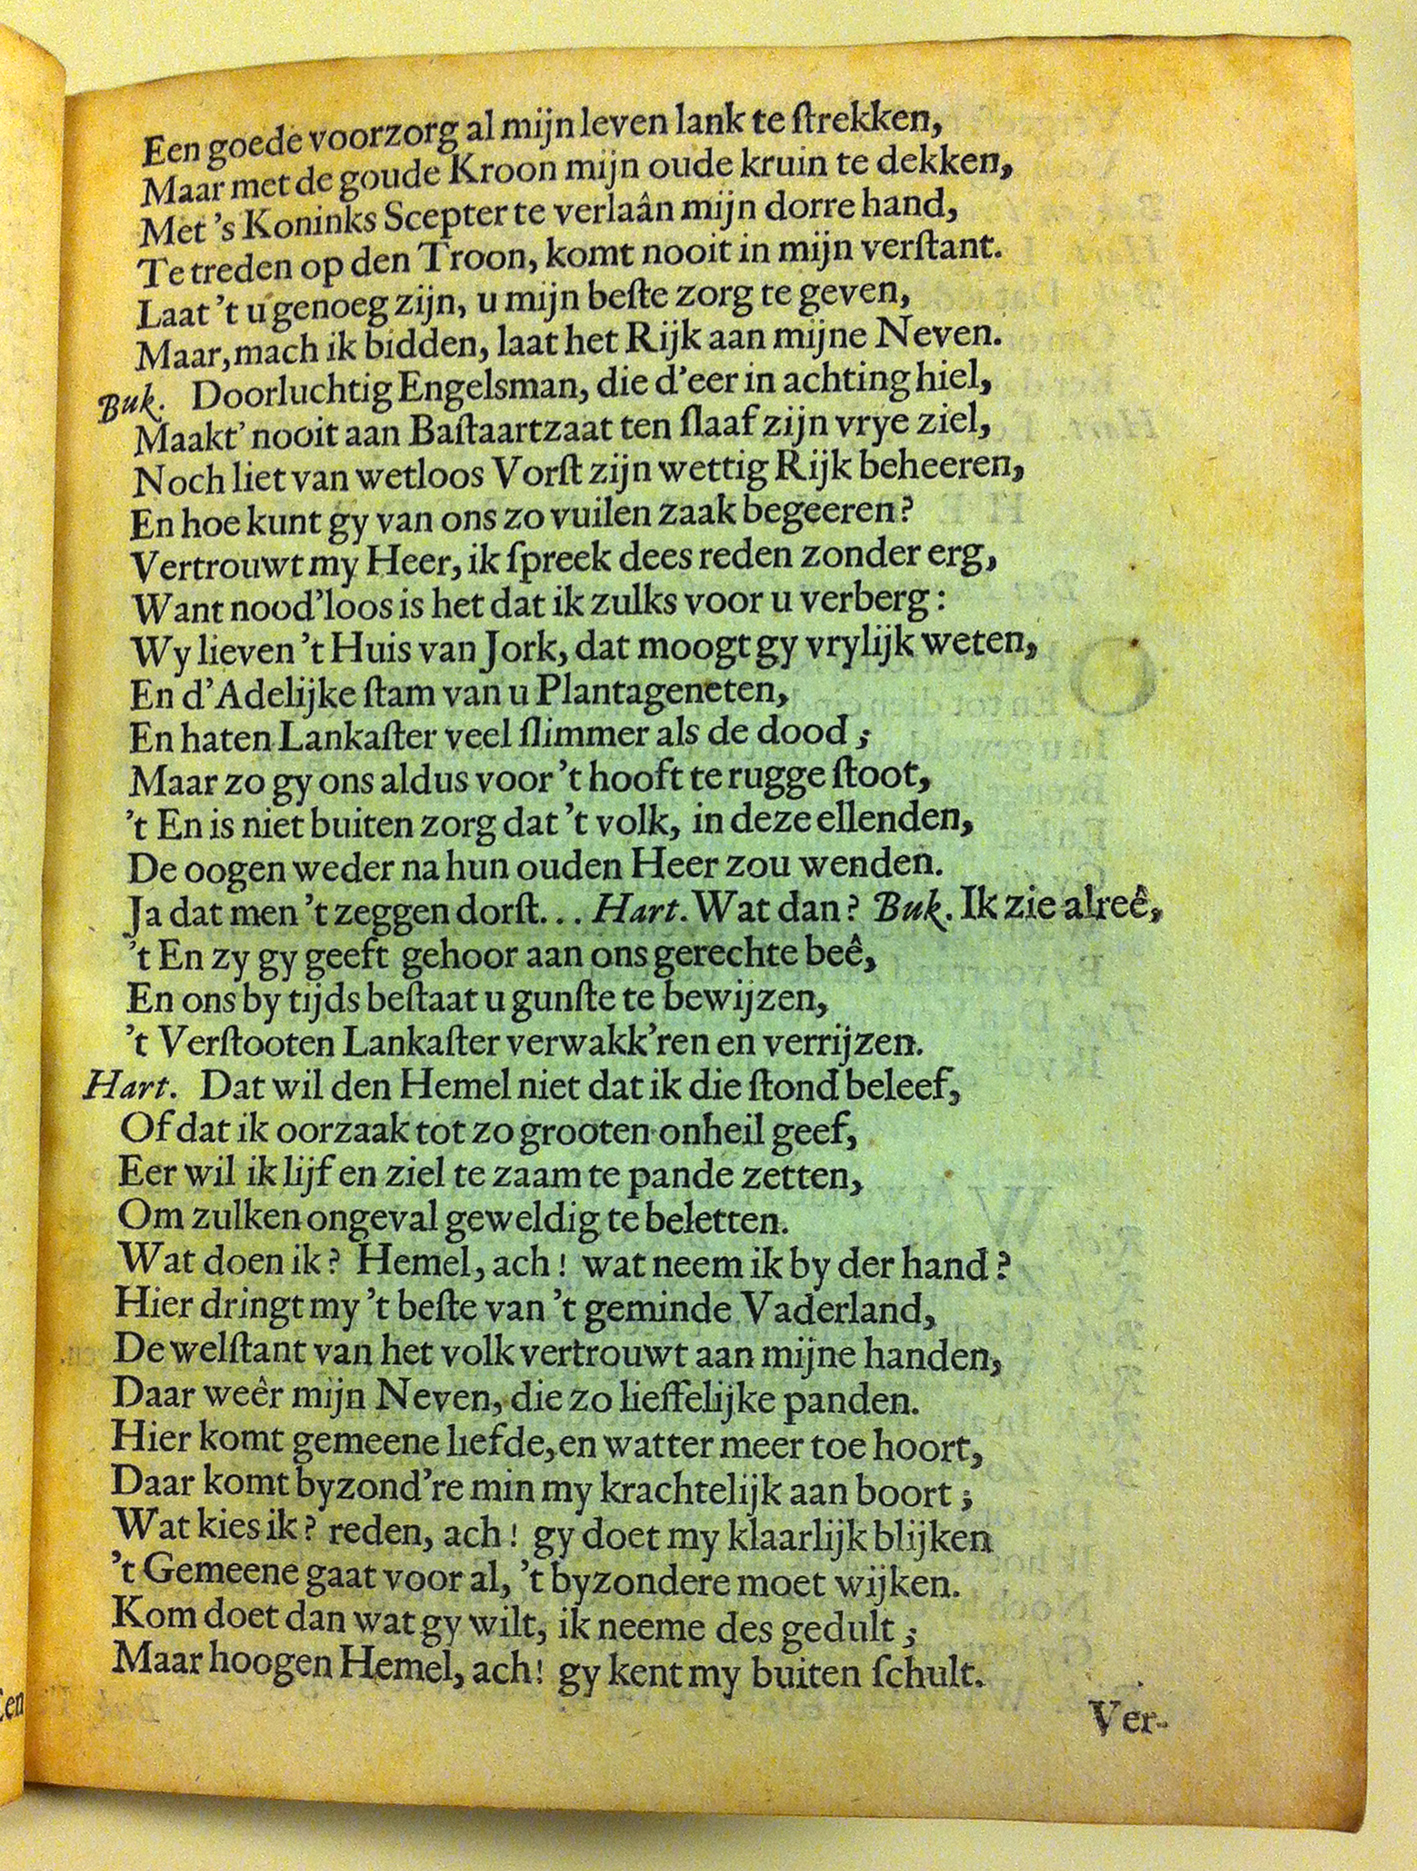 Een goede voorzorg al mijn leven lank te ſtrekken,
Maar met de goude Kroon mijn oude kruin te dekken,
Met 's Koninks Scepter te verlaân mijn dorre hand,
Te treden op den Troon, komt nooit in mijn verſtant.
Laat 't u genoeg zijn, u mijn beſte zorg te geven,
Maar, mach ik bidden, laat het Rijk aan mijne Neven.
Buk. Doorluchtig Engelsman, die d'eer in achting hiel,
Maakt' nooit aan Baſtaartzaat ten ſlaaf zijn vrye ziel,
Noch liet van wetloos Vorſt zijn wettig Rijk beheeren,
En hoe kunt gy van ons zo vuilen zaak begeeren?
Vertrouwt my Heer, ik ſpreek dees reden zonder erg,
Want nood'loos is het dat ik zulks voor u verberg:
Wy lieven 't Huis van Jork, dat moogt gy vrylijk weten,
En d'Adelijke ſtam van u Plantageneten,
En haten Lankaſter veel ſlimmer als de dood;
Maar zo gy ons aldus voor 't hooft te rugge ſtoot,
't En is niet buiten zorg dat 't volk, in deze ellenden,
De oogen weder na hun ouden Heer zou wenden.
Ja dat men 't zeggen dorſt... Hart. Wat dan? Buk. Ik zie alreê,
't En zy gy geeft gehoor aan ons gerechte beê,
En ons by tijds beſtaat u gunſte te bewijzen,
't Verſtooten Lankaſter verwakk'ren en verrijzen.
Hart. Dat wil den Hemel niet dat ik die ſtond beleef,
Of dat ik oorzaak tot zo grooten onheil geef,
Eer wil ik lijf en ziel te zaam te pande zetten,
Om zulken ongeval geweldig te beletten.
Wat doen ik? Hemel, ach! wat neem ik by der hand?
Hier dringt my 't beſte van 't geminde Vaderland,
De welſtant van het volk vertrouwt aan mijne handen,
Daar weêr mijn Neven, die zo lieffelijke panden.
Hier komt gemeene liefde, en watter meer toe hoort,
Daar komt byzond're min my krachtelijk aan boort;
Wat kies ik? reden, ach! gy doet my klaarlijk blijken
't Gemeene gaat voor al, 't byzondere moet wijken.
Kom doet dan wat gy wilt, ik neeme des gedult;
Maar hoogen Hemel, ach! gy kent my buiten ſchult.
Ver-